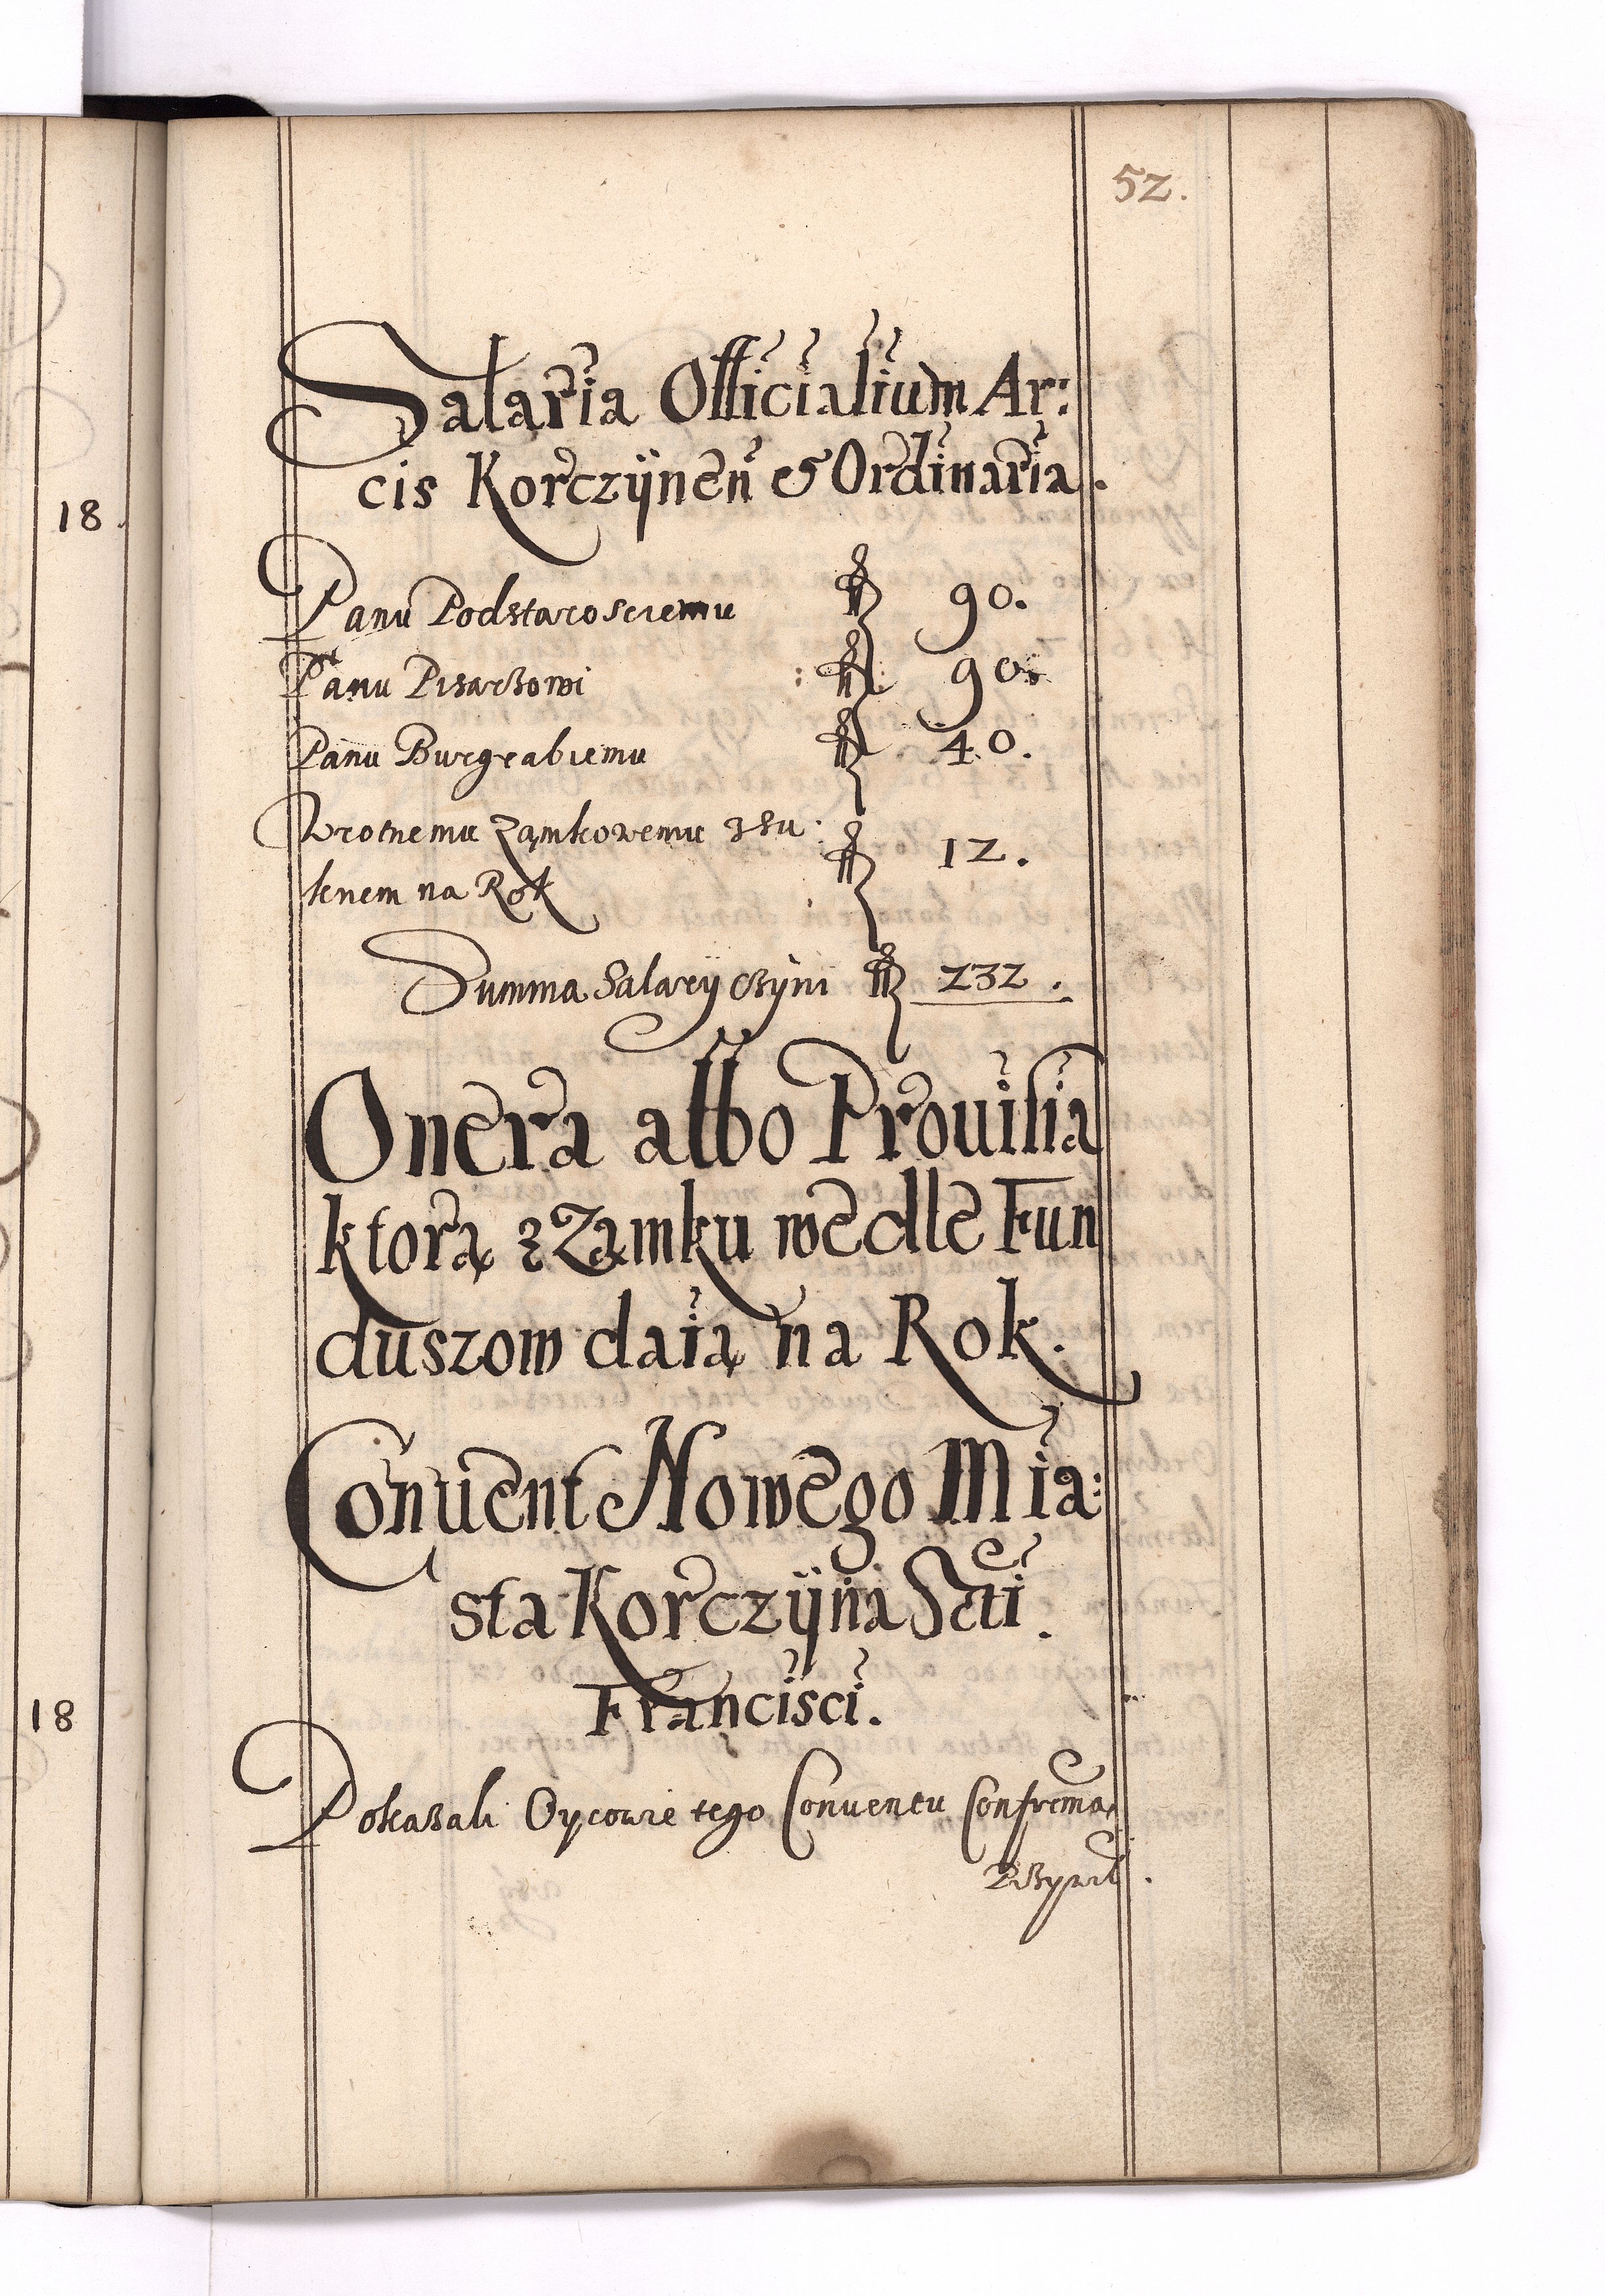 52.
Salaria Officialium Ar:
cis Korczÿnen̄ & Ordinaria.
18.
Panu Podstarosciemu fl 90.
Panu Pisarzowi : fl 90.
Panu Burgrabiemu fl 40.
Wrotnemu Zamkowemu z su
knem na Rok fl 12.
Summa Salarÿ czÿni fl 232.
Onera albo Prouisia
ktorą z Zamku wedle Fun
duszow daią na Rok.
Conuent Nowego Mia:
sta Korczÿna Scti
Francisci.
18
Pokazali Oycowie tego Conuentu Confrema